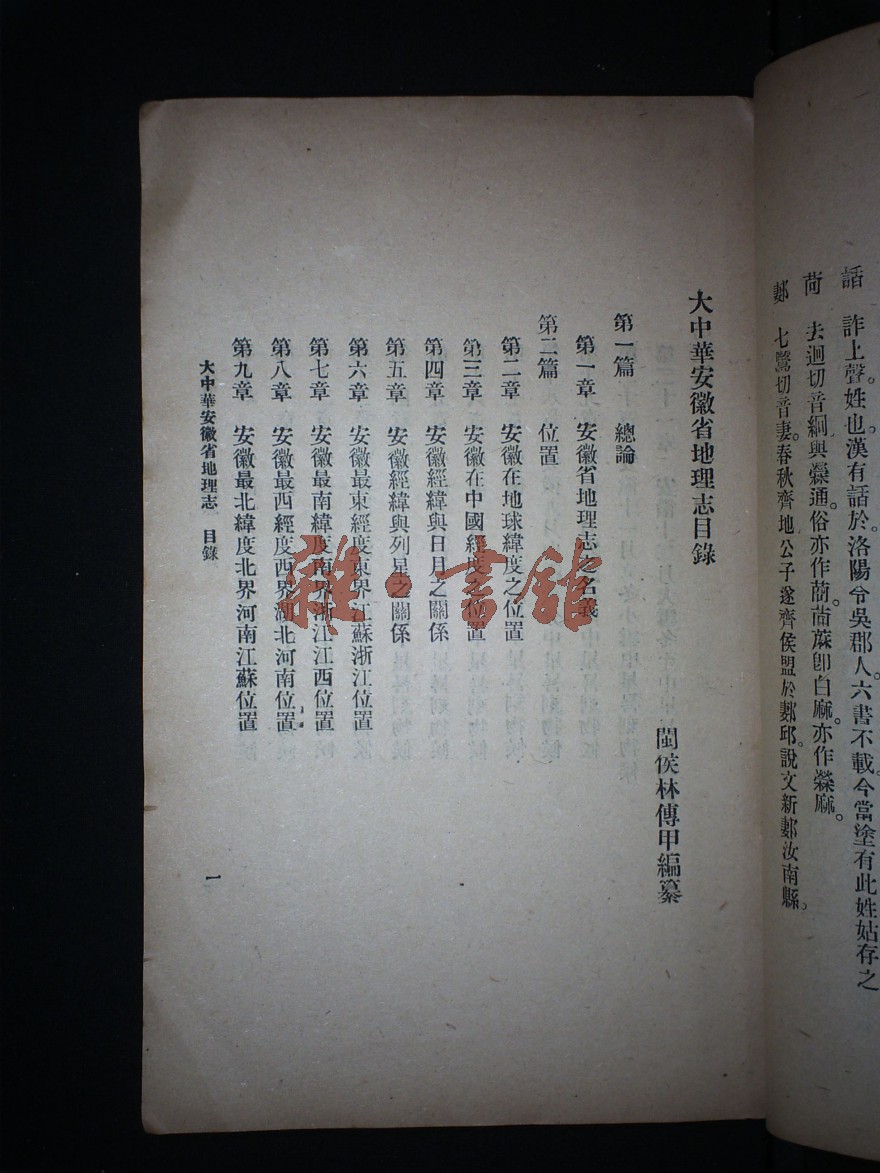 話　詐上聲姓也。漢有話於洛陽令吳郡人。六書不載今當塗有此姓姑存之
去迥切音絅與檾通。俗亦作䔛苘蔴卽白麻。亦作檾麻。
七鶿切音妻。春秋齊地公子遂齊侯盟於郪邱說文新郪汝南縣。
大中華安徽省地理志目錄
閩侯林傳甲編纂
第一篇　總論
第一章　安徽省地理志之名義
第二篇　位置
第二章　安徽在地球緯度之位置
第三章　安徽在中國經度之位置
第四章　安徽經緯與日月之關係
第五章　安徽經緯與列星之關係
第六章　安徽最東經度東界江蘇浙江位置
第七章　安徽最南緯度南界浙江江西位置
第八章　安徽最西經度西界湖北河南位置
第九章　安徽最北緯度北界河南江蘇位置
大中華安徽省地理志　目錄
一
雜·書館